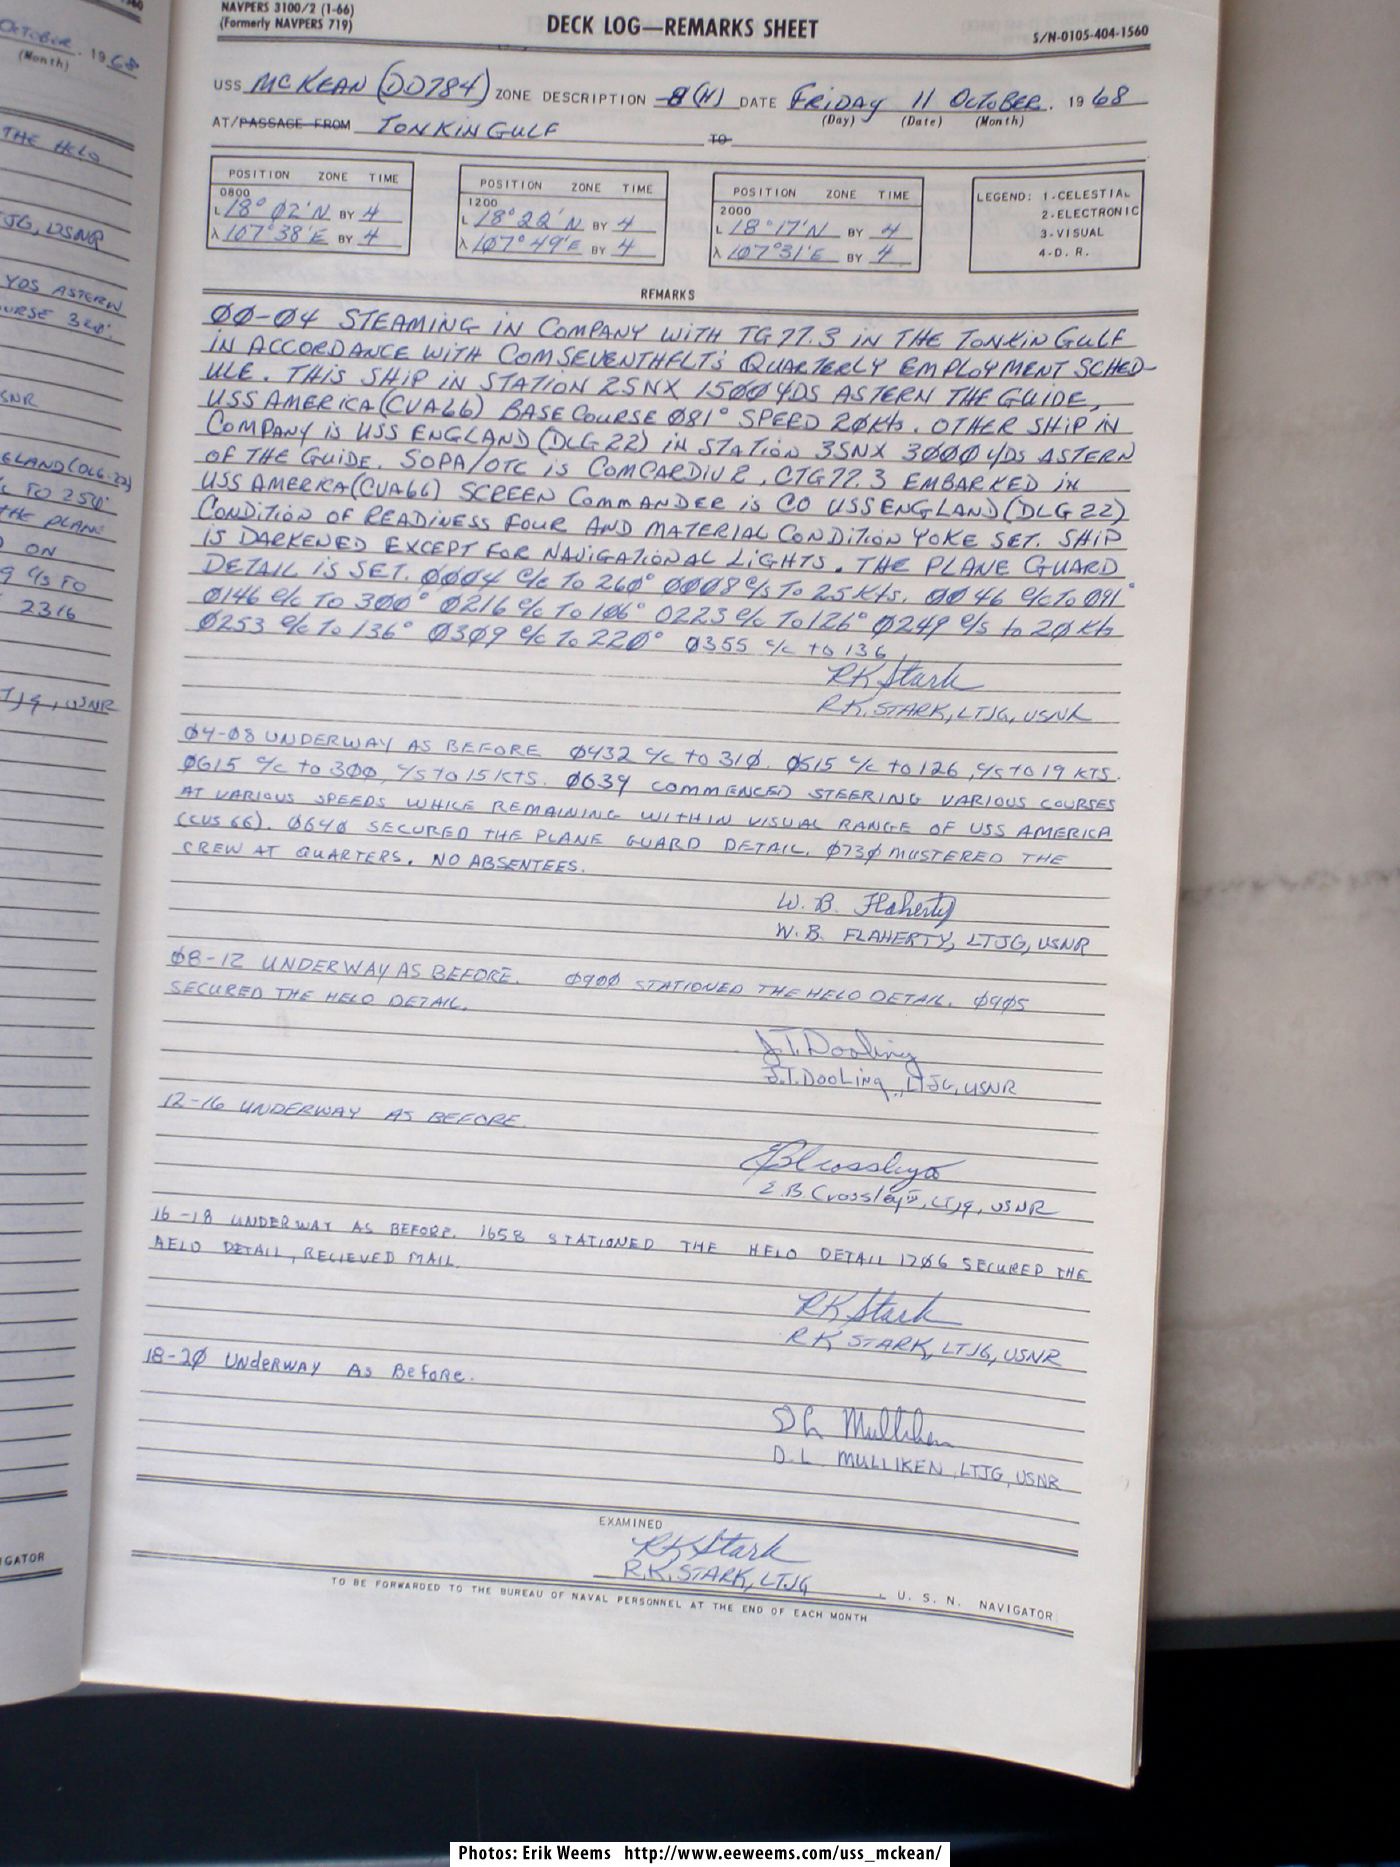 NAVPERS 3100/2 (1-66)
(Formerly NAVPERS 719)
DECK LOG—REMARKS SHEET
S/N-0105-404-1560
USS MCKEAN (DD784) ZONE DESCRIPTION -8(H) DATE FRIDAY 11 OCTOBER. 1968
(Day) (Date) (Month)
AT/PASSAGE FROM TONKIN GULF TO
POSITION ZONE TIME
0800
L 18° 02'N BY 4
λ 107° 38'E BY 4
POSITION ZONE TIME
1200
L 18° 22' N BY 4
λ 107° 49'E BY 4
POSITION ZONE TIME
2000
L 18° 17'N BY 4
λ 107° 31'E BY 4
LEGEND: 1-CELESTIAL
2-ELECTRONIC
3-VISUAL
4-D. R.
REMARKS
00-04 STEAMING IN COMPANY WITH TG 77.3 IN THE TONKIN GULF
IN ACCORDANCE WITH COMSEVENTHFLT'S QUARTERLY EMPLOYMENT SCHED-
ULE. THIS SHIP IN STATION 2SNX 1500 YDS ASTERN THE GUIDE,
USS AMERICA (CVA66) BASE COURSE 081° SPEED 20Kts. OTHER SHIP IN
COMPANY IS USS ENGLAND (DLG 22) IN STATION 3SNX 3000 YDS ASTERN
OF THE GUIDE. SOPA/OTC IS COMCARDIV 2, CTG 77.3 EMBARKED IN
USS AMERICA (CVA66) SCREEN COMMANDER IS CO USS ENGLAND (DLG 22)
CONDITION OF READINESS FOUR AND MATERIAL CONDITION YOKE SET. SHIP
IS DARKENED EXCEPT FOR NAVIGATIONAL LIGHTS. THE PLANE GUARD
DETAIL IS SET. 0004 c/c TO 260° 0008 c/s TO 25 Kts. 0046 c/c TO 091°
0146 c/c TO 300° 0216 c/c TO 106° 0223 c/c TO 126° 0249 c/s to 20 Kts
0253 c/c TO 136° 0309 c/c TO 220° 0355 c/c to 136
RK Stark
R.K. STARK, LTJG, USNR
04-08 UNDERWAY AS BEFORE 0432 c/c to 310. 0515 c/c to 126, c/s to 19 KTS.
0615 c/c to 300, c/s to 15 KTS. 0639 COMMENCED STEERING VARIOUS COURSES
AT VARIOUS SPEEDS WHILE REMAINING WITHIN VISUAL RANGE OF USS AMERICA
0640 SECURED THE PLANE GUARD DETAIL. 0730 MUSTERED THE
CREW AT QUARTERS. NO ABSENTEES.
W. B. Flaherty
W. B. FLAHERTY, LTJG, USNR
08-12 UNDERWAY AS BEFORE. 0900 STATIONED THE HELO DETAIL. 0905
SECURED THE HELO DETAIL.
J.T. Dooling
J.T. DOOLING, LTJG, USNR
12-16 UNDERWAY AS BEFORE.
E B Crossley III
E.B. Crossley III, LTJG, USNR
16-18 UNDERWAY AS BEFORE. 1658 STATIONED THE HELO DETAIL 1706 SECURED THE
HELO DETAIL, RECIEVED MAIL.
RK Stark
R K STARK, LTJG, USNR
18-20 UNDERWAY AS BEFORE.
D L Mulliken
D. L. MULLIKEN, LTJG, USNR
EXAMINED
RK Stark
R.K. STARK, LTJG , U. S. N. NAVIGATOR
TO BE FORWARDED TO THE BUREAU OF NAVAL PERSONNEL AT THE END OF EACH MONTH
OCTOBER. 1968
(Month)
THE HELO
JG, USNR
YDS ASTERN
COURSE 320°.
USNR
ENGLAND (DLG-22)
TO 250°
THE PLANE
ON
c/s TO
2316
LTJG, USNR
NAVIGATOR
Photos: Erik Weems http://www.eeweems.com/uss_mckean/